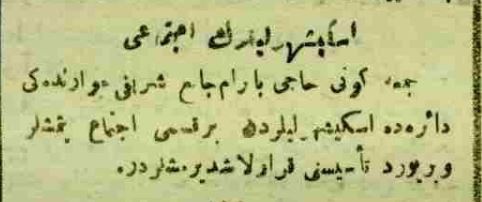 اسكیشهرلیلرك اجتماعی
جمعه كونی حاجی بایرام جامع شریفی جوارنده‌كی
دائره‌ده اسكیشهرلیلردن برقسمی اجتماع ایتمشلر
و بریورد تأسیسنی قرارلاشدیرمشلردر.